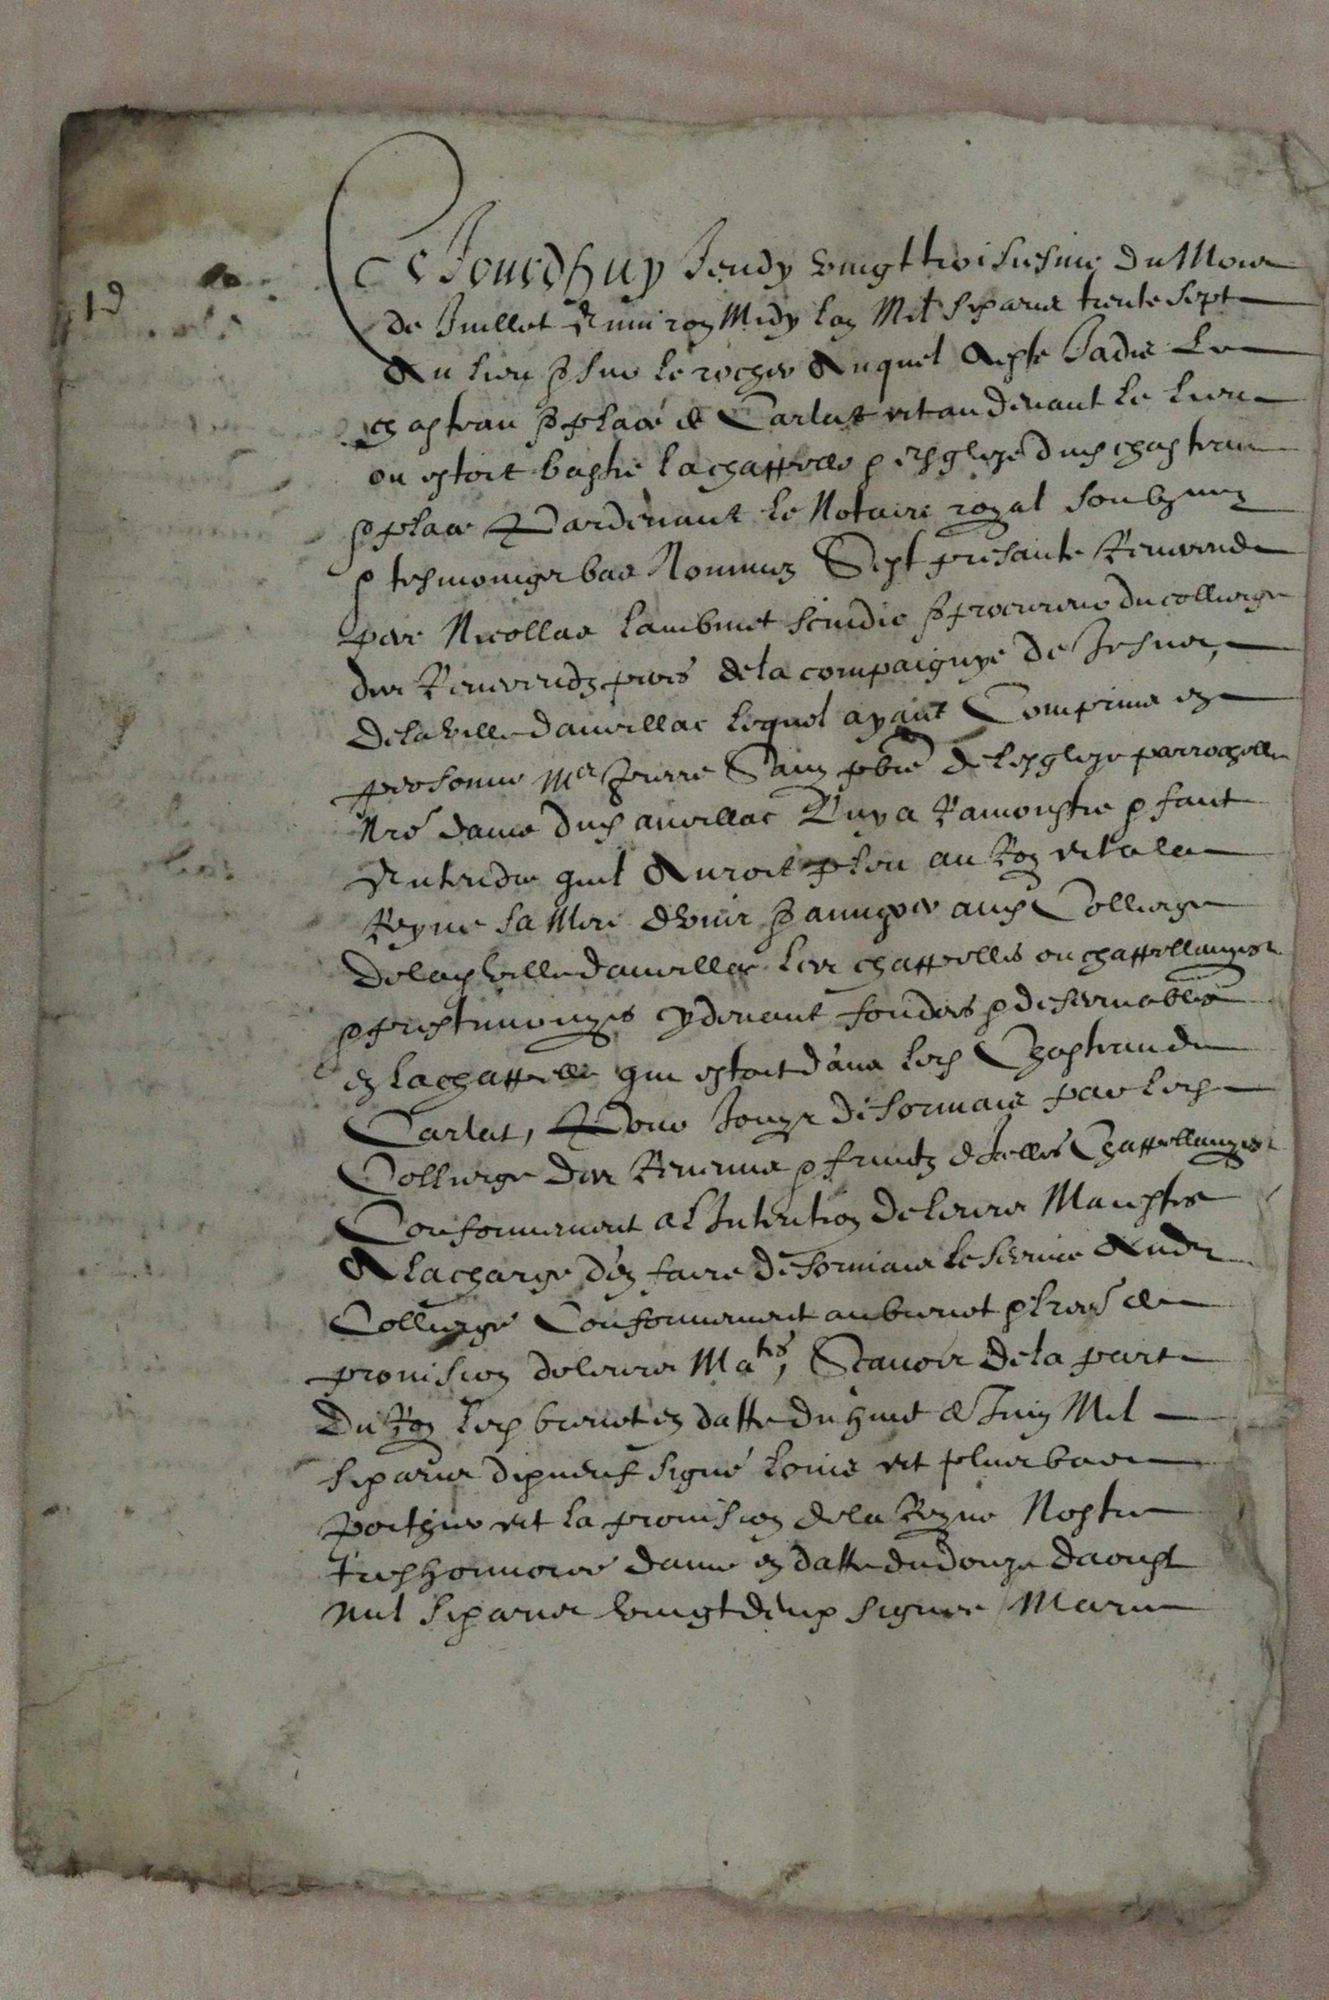 19
Ce Jourdhuy Jeudy vingt troisiesme du Mois
de Juillet environ Midy lan Mil six cens trente sept
Au lieu & sur le rocher Auquel Aeste Jadis Le
chasteau & place de Carlat et au devant le lieu
ou estoit bastie la chappelle & esglize dud chasteau
& place Pardevant le Notaire royal soubzné
& tesmoings bas Nommez Sest presante Reverend
pere Nicollas Lambinet scindic & procureur du colliege
des Reverendz peres de la compaignye de Jesus,
de la ville daurillac lequel ayant Comprins en
personne Mre Pierre Sain pbre de lesglize parrochelle
Nre dame dud aurillac Luy a Ramonstre & faict
Entendre quil Auroit pleu au Roy et a la
Reyne sa Mere dunir & annexer aud Colliege
de lad ville daurillac les chappelles ou chappellanyes
& prestimonyes cy devant fondees & deservables
en la chappelle qui estoit dans led Chasteau de
Carlat, Pour Jouyr desormais par led
Colliege des Revenus & fruictz dicelles Chappellanyes
Conformement a L Intention de leurs Maiestes
A la charge den faire desormais le service Aud
Colliege Conformement au brevet & lres de
provision de leurs Mates, Scavoir de la part
du Roy led brevet en datte du huict de Juin Mil
six cens dixneuf signe Louis et plus bas
Pothier et la provision de la Reyne Nostre
tres honnoree dame en datte du douze daoust
mil six cens vingt deux signee Marie